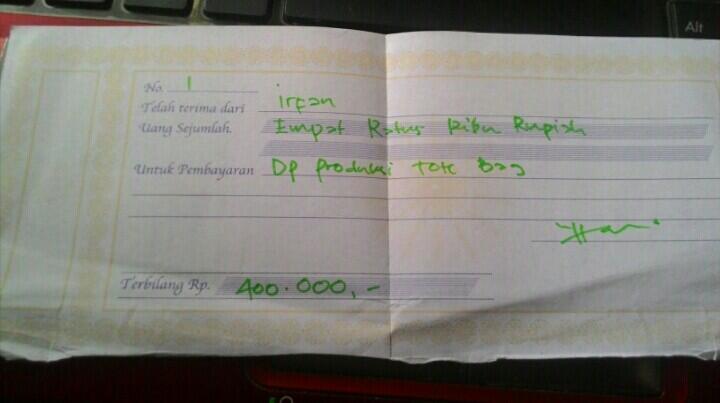 Alt
No. 1
Telah terima dari irfan
Uang Sejumlah. Empat Ratus Ribu Rupiah
Untuk Pembayaran DP Produksi Tote Bag
Terbilang Rp. 400.000,-